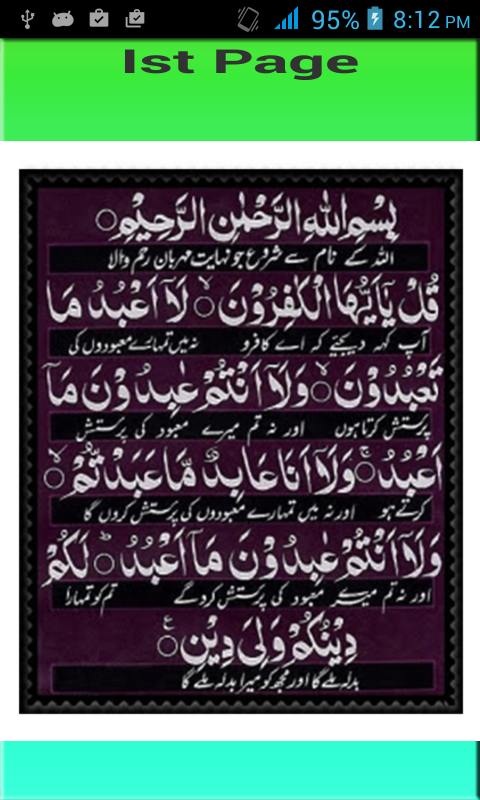 95% 8:12 PM
Ist Page
بِسْمِ اللهِ الرَّحْمٰنِ الرَّحِيْمِ○
اللہ کے نام سے شروع جو نہایت مہربان رحم والا
قُلْ يٰٓاَيُّهَا الْكٰفِرُوْنَ○ لَآ اَعْبُدُ مَا
آپ کہہ دیجئے کہ اے کافرو نہ میں تمہارے معبودوں کی
تَعْبُدُوْنَ○ وَلَآ اَنْتُمْ عٰبِدُوْنَ مَآ
پرستش کرتا ہوں اور نہ تم میرے معبود کی پرستش
اَعْبُدُ○ وَلَآ اَنَا عَابِدٌ مَّا عَبَدْتُّمْ○
کرتے ہو اور نہ میں تمہارے معبودوں کی پرستش کروں گا
وَلَآ اَنْتُمْ عٰبِدُوْنَ مَآ اَعْبُدُ○ لَكُمْ
اور نہ تم میرے معبود کی پرستش کرو گے تم کو تمہارا
دِيْنُكُمْ وَلِىَ دِيْنِ○
بدلہ ملے گا اور مجھ کو میرا بدلہ ملے گا